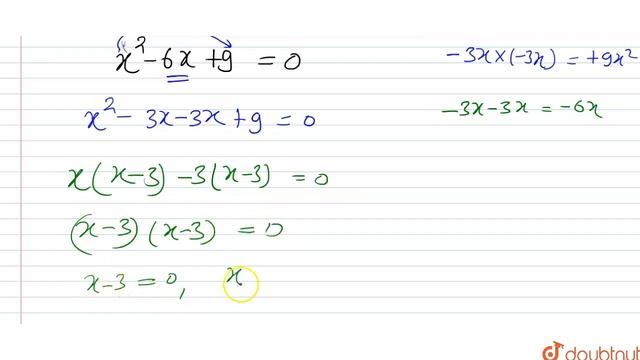 x² - 6x + 9 = 0
-3x × (-3x) = +9x²
x² - 3x - 3x + 9 = 0
-3x - 3x = -6x
x(x-3) - 3(x-3) = 0
(x-3)(x-3) = 0
x-3 = 0, x
doubtnut